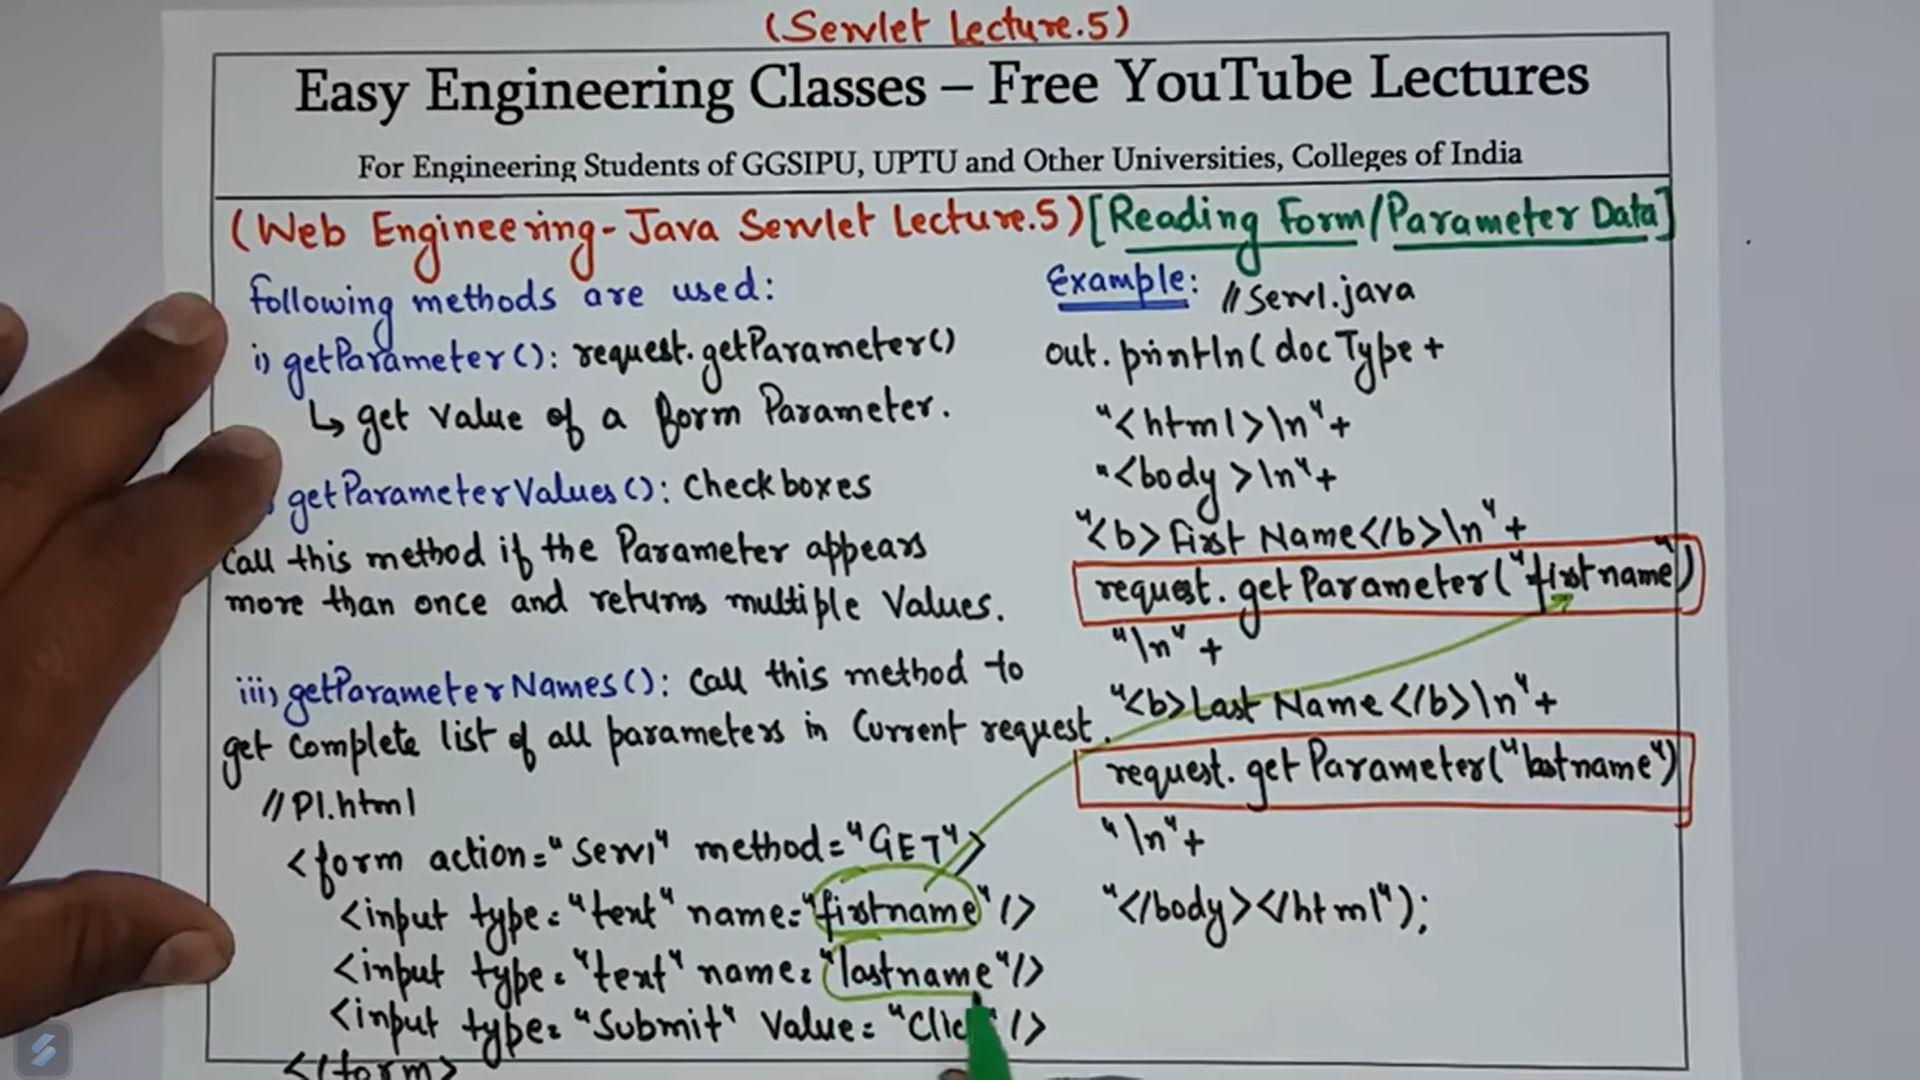 (Servlet Lecture.5)
Easy Engineering Classes – Free YouTube Lectures
For Engineering Students of GGSIPU, UPTU and Other Universities, Colleges of India
(Web Engineering-Java Servlet Lecture.5) [Reading Form/Parameter Data]
following methods are used:
i) getParameter(): request.getParameter()
↳ get value of a form Parameter.
getParameterValues(): Checkboxes
Call this method if the Parameter appears
more than once and returns multiple Values.
iii) getParameterNames(): Call this method to
get complete list of all parameters in Current request.
//P1.html
<form action="Serv1" method="GET">
<input type="text" name="firstname"/>
<input type="text" name="lastname"/>
<input type="Submit" Value="Clic"/>
</form>
Example: //Serv1.java
out.println(docType +
"<html>\n"+
"<body>\n"+
"<b>First Name</b>\n"+
request.getParameter("firstname")
"\n"+
"<b>Last Name</b>\n"+
request.getParameter("lastname")
"\n"+
"</body></html");